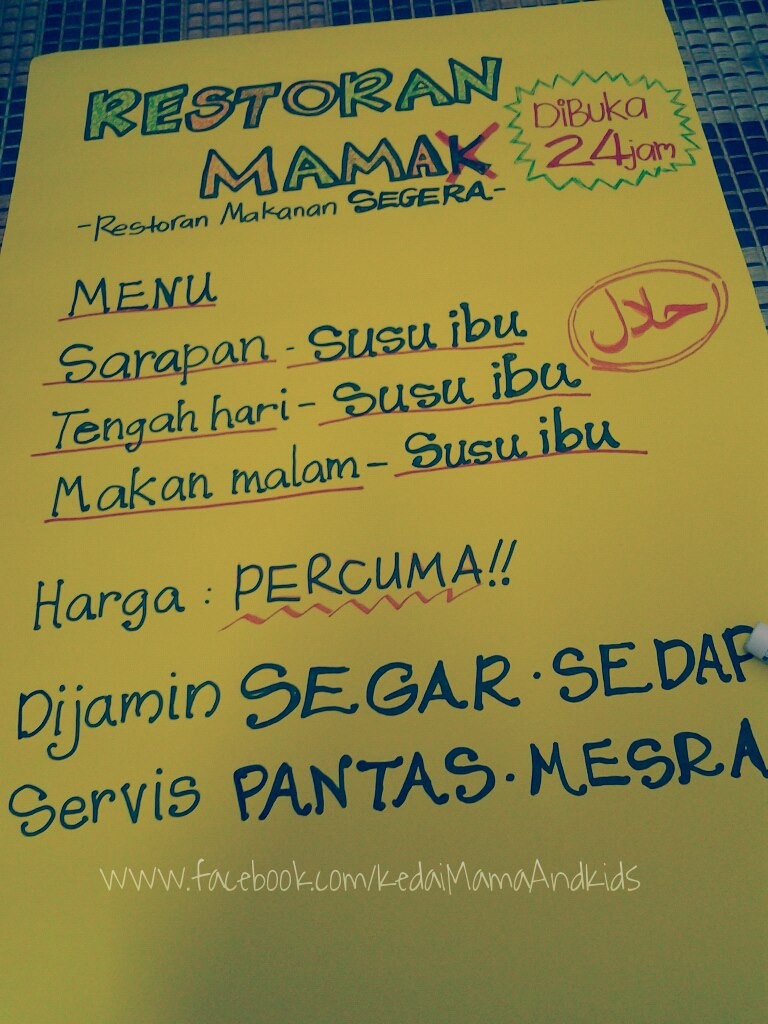 RESTORAN
MAMAK
DiBUKA
24jam
-Restoran Makanan SEGERA-
MENU
حلال
Sarapan - Susu ibu
Tengah hari - Susu ibu
Makan malam - Susu ibu
Harga : PERCUMA!!
Dijamin SEGAR · SEDAP
Servis PANTAS · MESRA
www.facebook.com/kedaiMamaAndkids